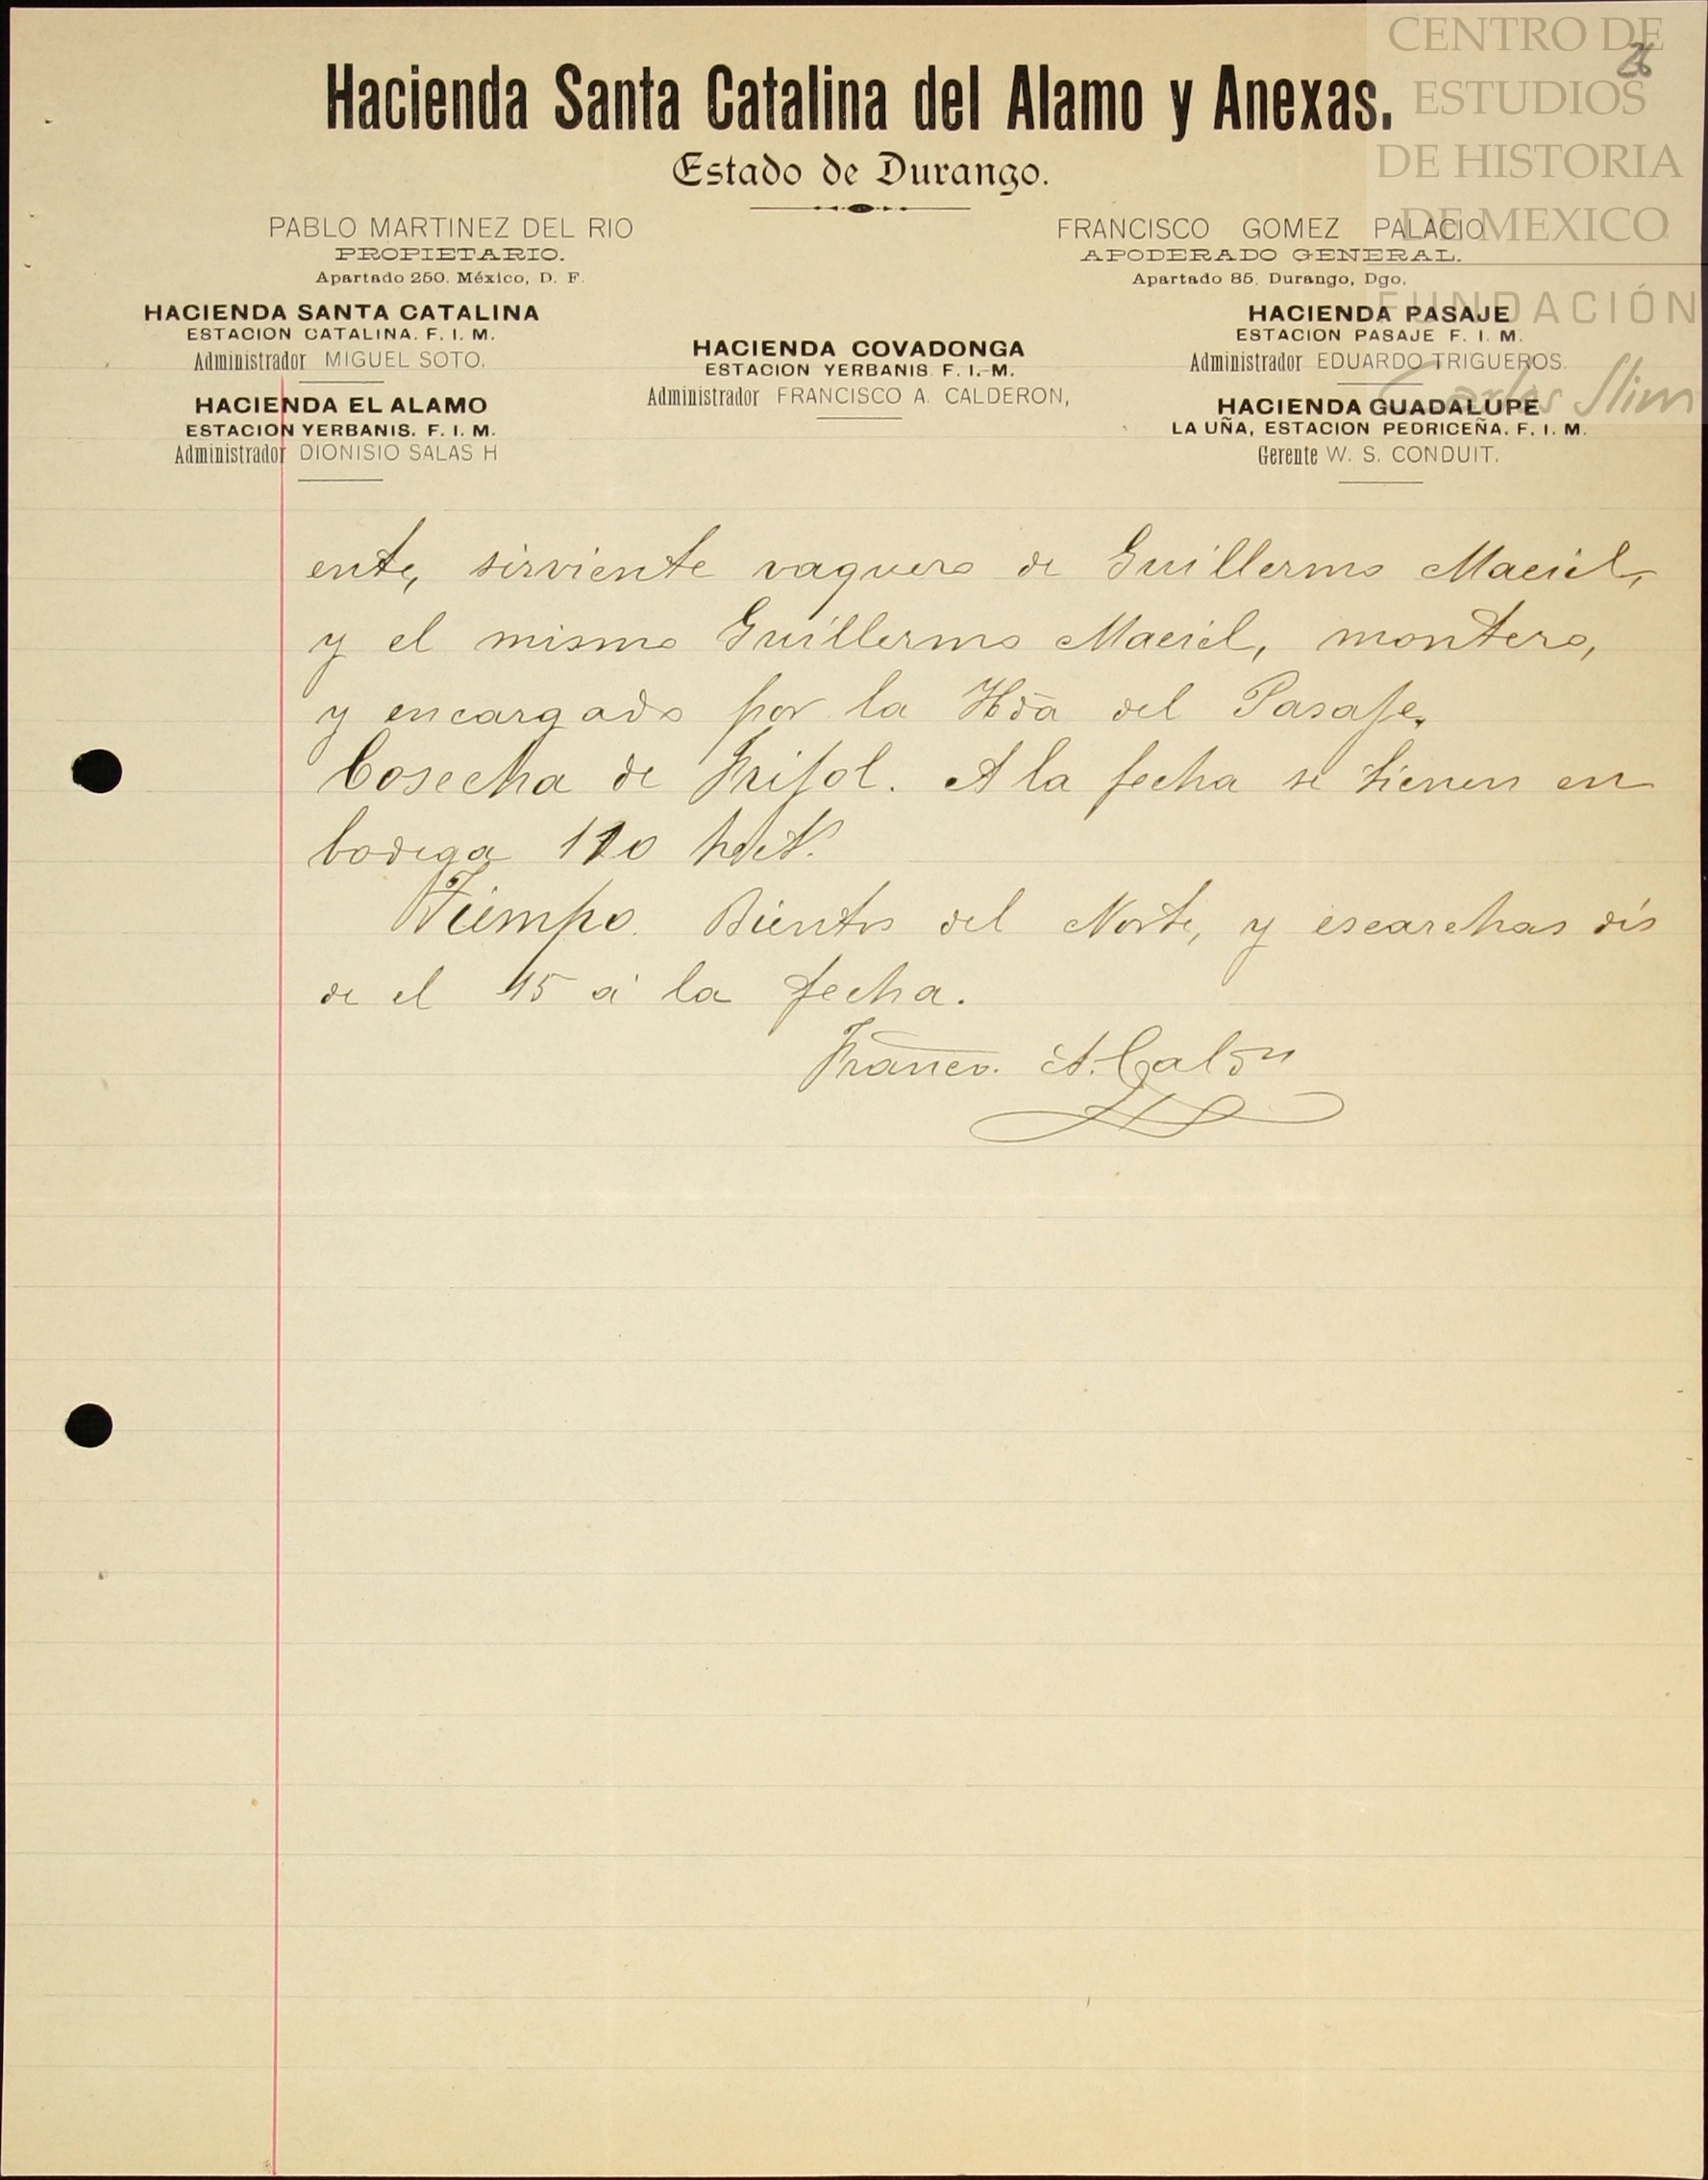 CENTRO DE
ESTUDIOS
DE HISTORIA
DE MEXICO
FUNDACIÓN
Carlos Slim
26
Hacienda Santa Catalina del Alamo y Anexas.
Estado de Durango.
PABLO MARTINEZ DEL RIO
PROPIETARIO.
Apartado 250. México, D. F.
FRANCISCO GOMEZ PALACIO
APODERADO GENERAL.
Apartado 85. Durango, Dgo.
HACIENDA SANTA CATALINA
ESTACION CATALINA. F. I. M.
Administrador MIGUEL SOTO.
HACIENDA EL ALAMO
ESTACION YERBANIS. F. I. M.
Administrador DIONISIO SALAS H
HACIENDA COVADONGA
ESTACION YERBANIS. F. I. M.
Administrador FRANCISCO A. CALDERON,
HACIENDA PASAJE
ESTACION PASAJE F. I. M.
Administrador EDUARDO TRIGUEROS.
HACIENDA GUADALUPE
LA UÑA, ESTACION PEDRICEÑA. F. I. M.
Gerente W. S. CONDUIT.
ente, sirviente vaquero de Guillermo Maciel,
y el mismo Guillermo Maciel, montero,
y encargado por la Hda del Pasaje.
Cosecha de Frijol. A la fecha se tienen en
bodega 110 hect.
Tiempo. Bientos del Norte, y escarchas des
de el 15 á la fecha.
Franco. A. Calon